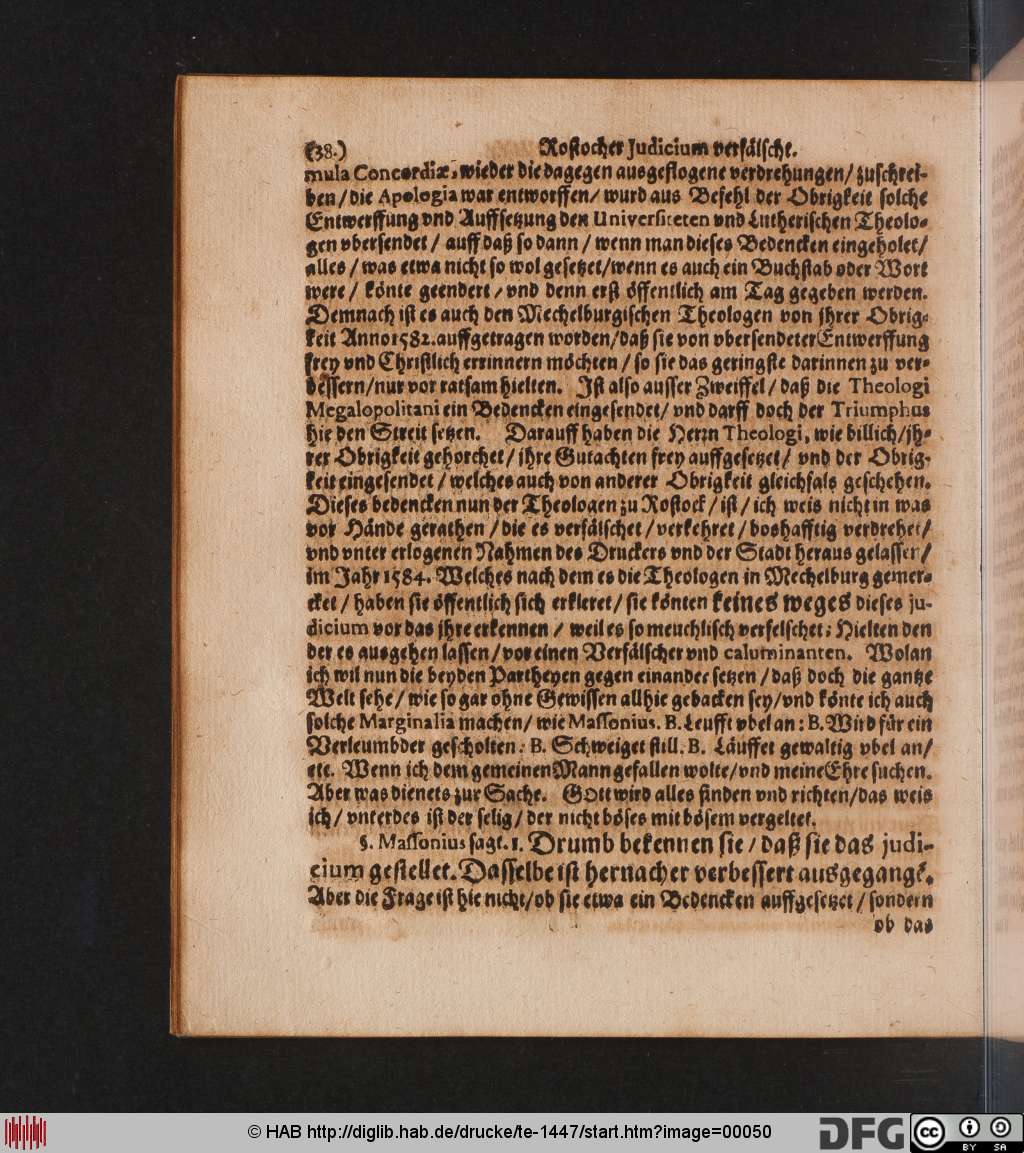 (38.) Rostocher Judicium verfälscht.
mula Concordiæ, wieder die dagegen ausgeflogene verdrehungen/ zuschrei-
ben/ die Apologia war entworffen/ wurd aus Befehl der Obrigkeit solche
Entwerffung vnd Auffsetzung den Universiteten vnd Lutherischen Theolo-
gen vbersendet/ auff daß so dann/ wenn man dieses Bedencken eingeholet/
alles/ was etwa nicht so wol gesetzet/ wenn es auch ein Buchstab oder Wort
were/ könte geendert/ vnd denn erst öffentlich am Tag gegeben werden.
Demnach ist es auch den Mechelburgischen Theologen von jhrer Obrig-
keit Anno 1582. auffgetragen worden/ daß sie von vbersendeter Entwerffung
frey vnd Christlich errinnern möchten/ so sie das geringste darinnen zu ver-
bessern/ nur vor ratsam hielten. Ist also ausser Zweiffel/ daß die Theologi
Megalopolitani ein Bedencken eingesendet/ vnd darff doch der Triumphus
hie den Streit setzen. Darauff haben die Herrn Theologi, wie billich/ jh-
rer Obrigkeit gehorchet/ ihre Gutachten frey auffgesetzet/ vnd der Obrig-
keit eingesendet/ welches auch von anderer Obrigkeit gleichfals geschehen.
Dieses bedencken nun der Theologen zu Rostock/ ist/ ich weis nicht in was
vor Hände gerathen/ die es verfälschet/ verkehret/ boshafftig verdrehet/
vnd vnter erlogenen Nahmen des Druckers vnd der Stadt heraus gelassen/
im Jahr 1584. Welches nach dem es die Theologen in Mechelburg gemer-
cket/ haben sie öffentlich sich erkleret/ sie könten keines weges dieses ju-
dicium vor das jhre erkennen/ weil es so meuchlisch verfelschet: Hielten den
der es ausgehen lassen/ vor einen Verfälscher vnd caluminanten. Wolan
ich wil nun die beyden Partheyen gegen einander setzen/ daß doch die gantze
Welt sehe/ wie so gar ohne Gewissen allhie gebacken sey/ vnd könte ich auch
solche Marginalia machen/ wie Massonius. B. Leufft vbel an: B. Wird für ein
Verleumbder gescholten: B. Schweiget still. B. Läuffet gewaltig vbel an/
etc. Wenn ich dem gemeinen Mann gefallen wolte/ vnd meine Ehre suchen.
Aber was dienets zur Sache. GOtt wird alles finden vnd richten/ das weis
ich/ vnterdes ist der selig/ der nicht böses mit bösem vergeltet.
§. Massonius sagt. 1. Drumb bekennen sie/ daß sie das judi-
cium gestellet. Dasselbe ist hernacher verbessert ausgegangē.
Aber die Frage ist hie nicht/ ob sie etwa ein Bedencken auffgesetzet/ sondern
ob das
© HAB http://diglib.hab.de/drucke/te-1447/start.htm?image=00050
DFG
cc
BY SA